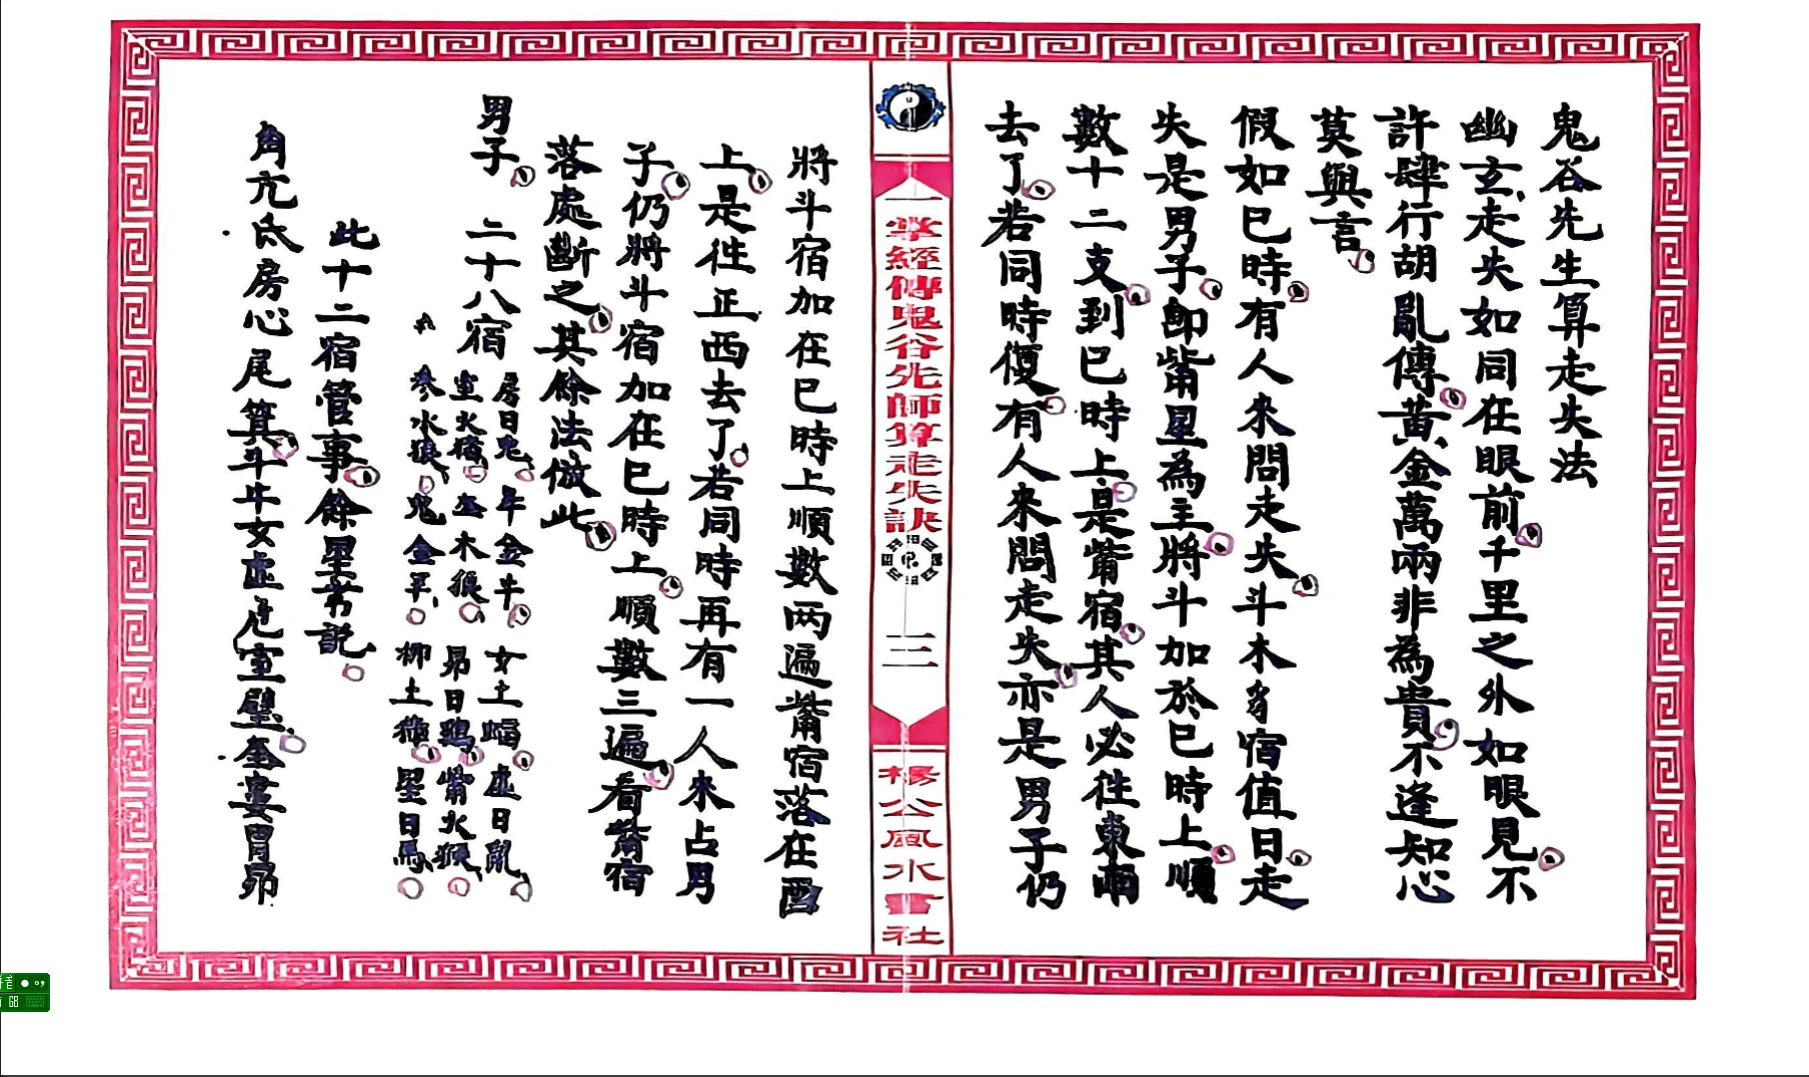 鬼谷先生算走失法
幽玄走失如同在眼前千里之外如眼見不
許肆行胡亂傳黃金萬兩非為貴不逢知心
莫與言
假如巳時有人來問走失斗木豸宿值日走
失是男子卽觜星為主將斗加於巳時上順
數十二支到巳時上是觜宿其人必往東南
去了若同時便有人來問走失亦是男子仍
一掌經傳鬼谷先師算走失訣
三
楊公風水書社
將斗宿加在巳時上順數两遍觜宿落在酉
上是往正西去了若同時再有一人來占男
子仍將斗宿加在巳時上順數三遍看觜宿
落處斷之其餘法倣此
男子 二十八宿
房日兔 牛金牛 女土蝠 虛日鼠
室火猪 奎木狼 昴日鷄 觜火猴
參水猿 鬼金羊 柳土獐 星日馬
此十二宿管事餘星勿說
角亢氐房心尾箕斗牛女虛危室壁奎婁胃昴